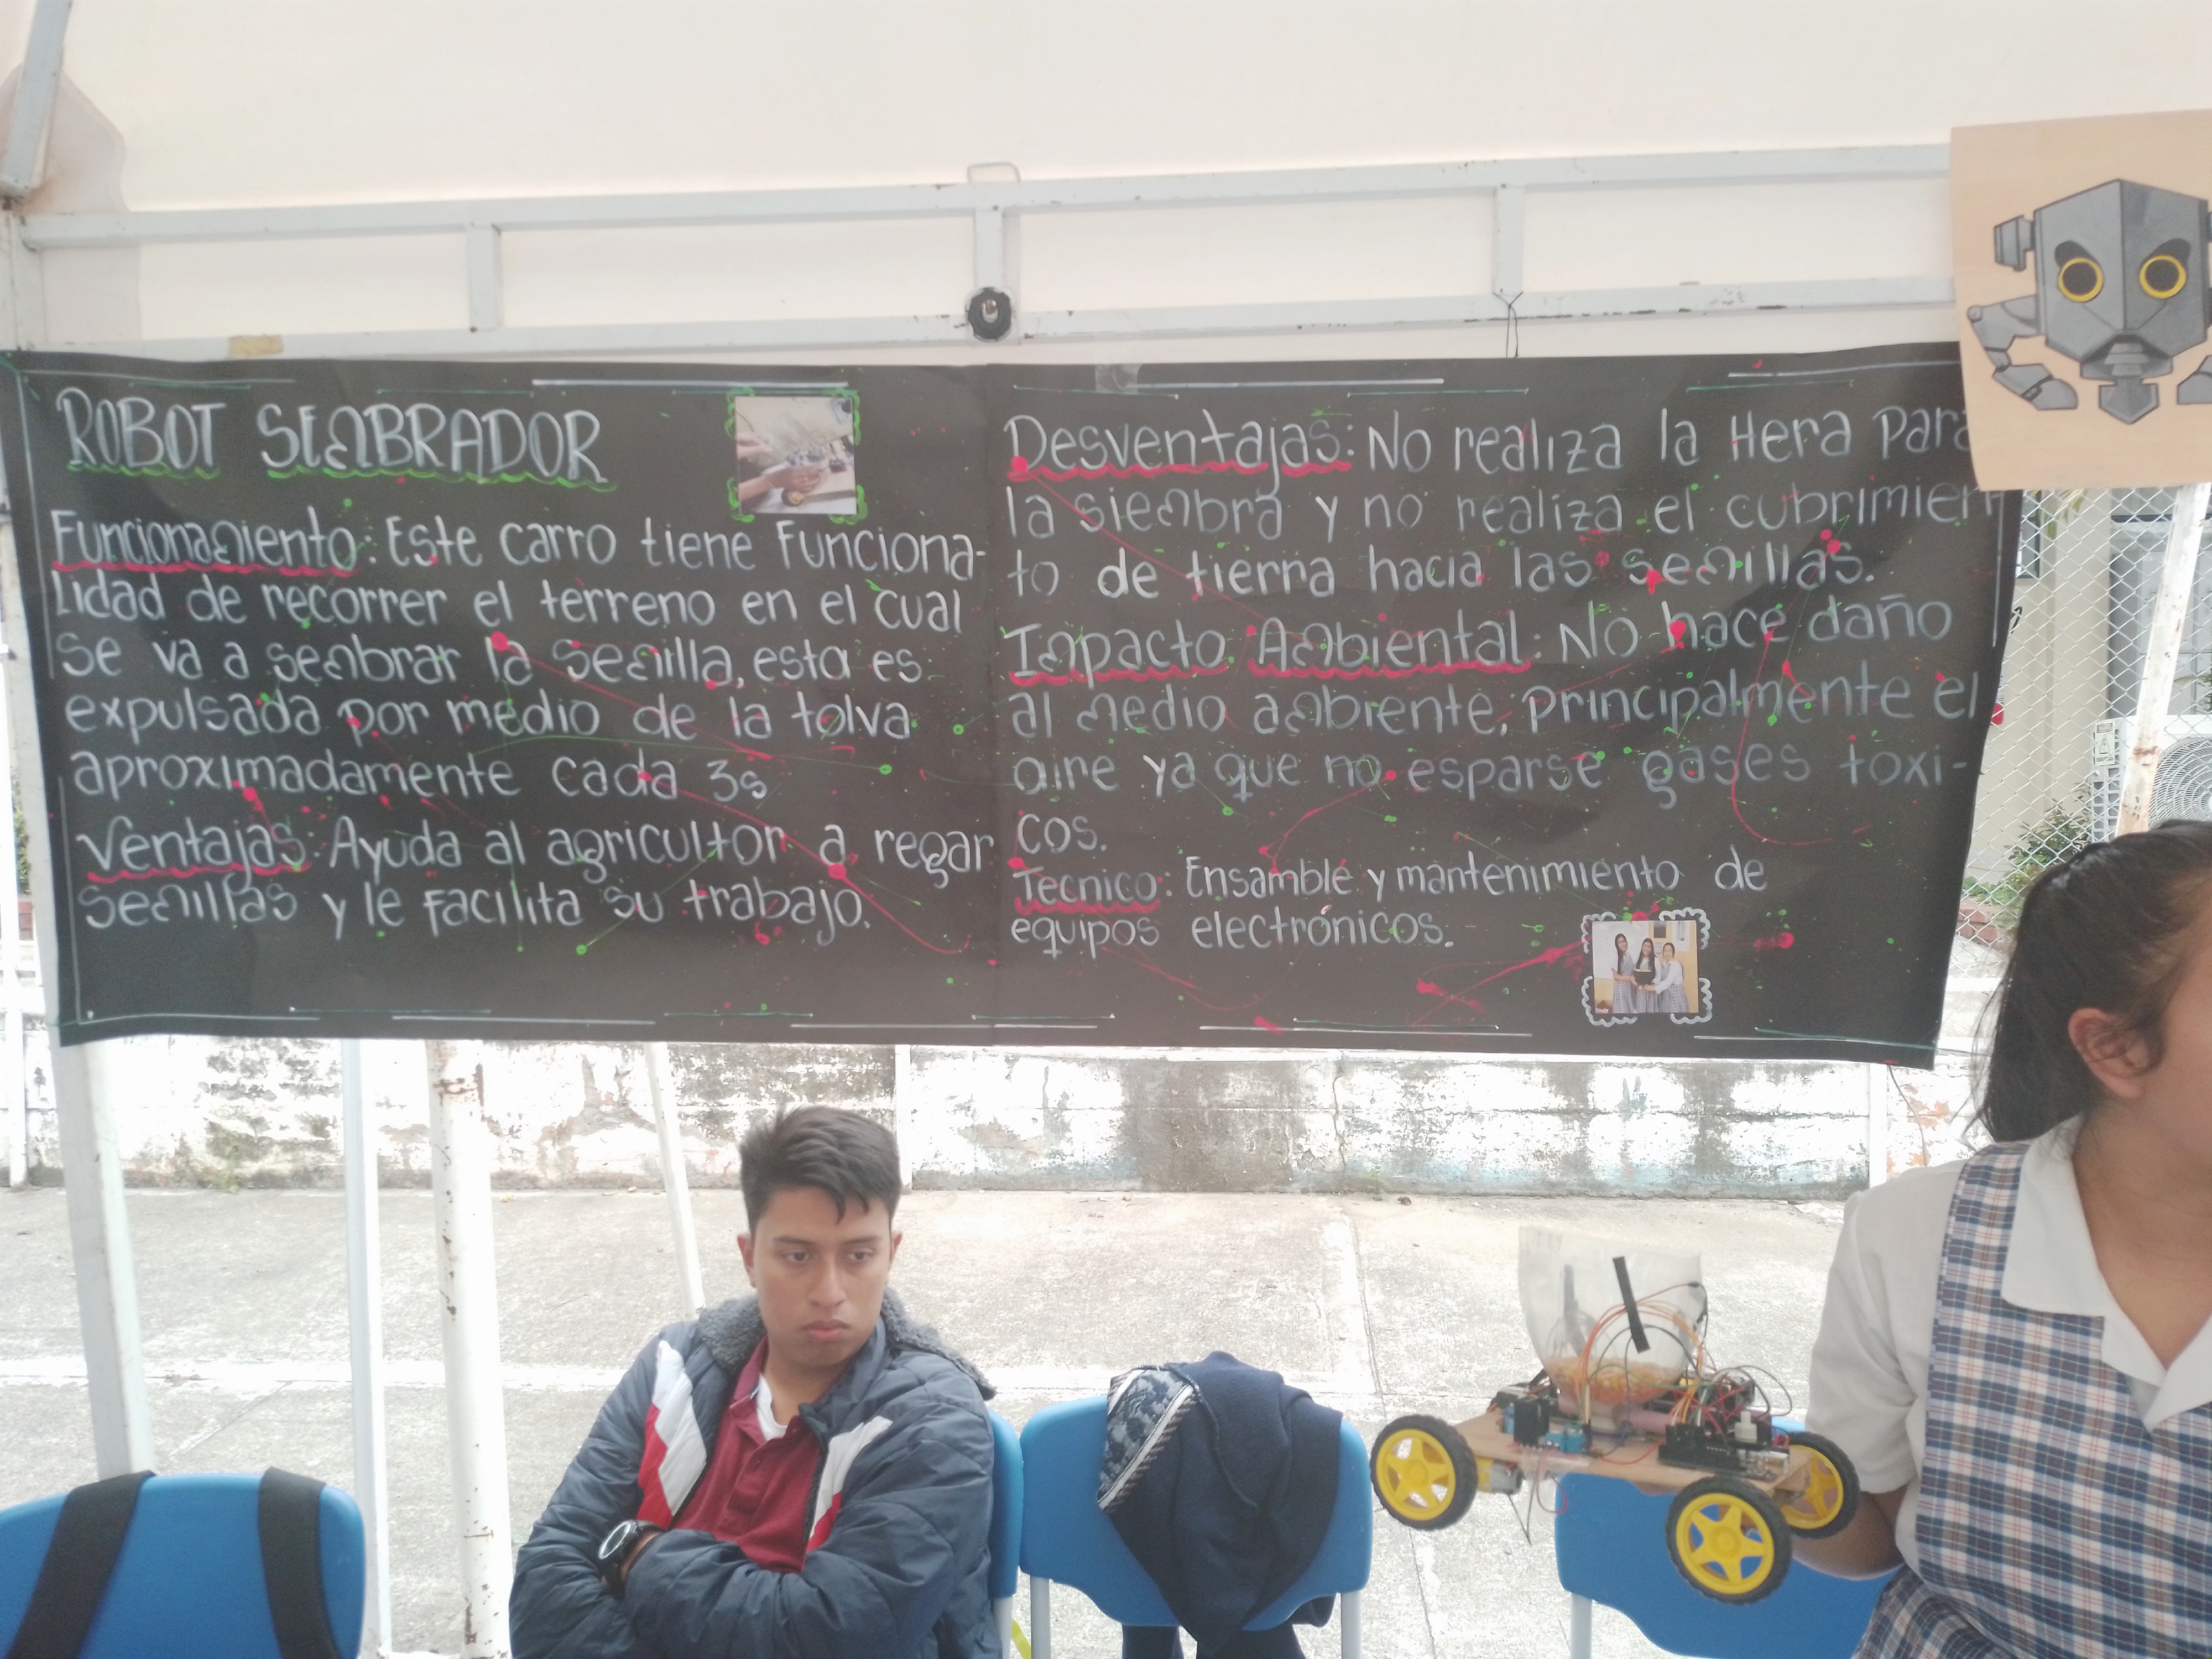 ROBOT SEMBRADOR
Funcionamiento: Este carro tiene Funciona-
lidad de recorrer el terreno en el cual
se va a sembrar la semilla, esta es
expulsada por medio de la tolva
aproximadamente cada 3s
Ventajas: Ayuda al agricultor a regar
semillas y le facilita su trabajo.
Desventajas: No realiza la Hera para
la siembra y no realiza el cubrimien
to de tierra hacia las semillas.
Impacto Ambiental: No hace daño
al medio ambiente, principalmente el
aire ya que no esparse gases toxi-
cos.
Tecnico: Ensamble y mantenimiento de
equipos electrónicos.